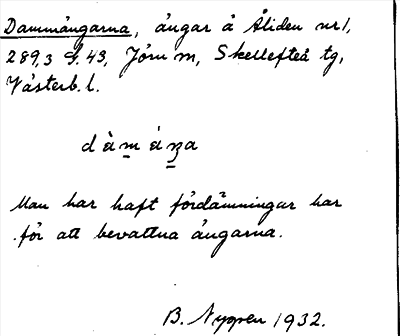 Dammängarna, ängar å Åliden nr 1,
289,3 S.43, Jörn sn, Skellefteå tg,
Västerb. l.
Man har haft fördämningar här
för att bevattna ängarna.
B. Nygren 1932.